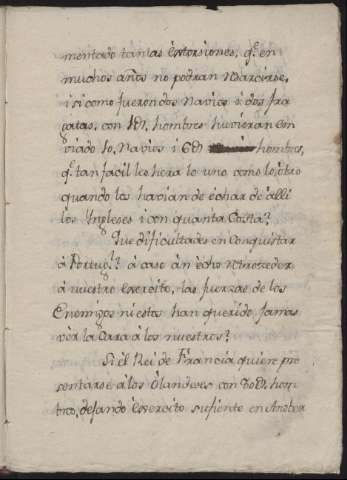 mentado tantas extorsiones, q.e en
muchos años no podran resarcirse,
i si como fueron dos Navios ò dos fra
gatas, con hombres huvieran em
viado 10. Navios i 6@ hombres,
q.e tan facil les hera lo uno como lo otro
quando los havian de echar de alli
los Yngleses i con quanta Costa?
Que dificultades en Conquistar
à Portug.l? à caso àn echo retrozeder
à nuestro exercito, las fuerzas de los
Enemigos ni estos han querido jamas
vèr la Cara à los nuestros?
Si el Rei de Francia quiere pre
sentarse à los Olandeses con hom
bres, dejando exercito sufiente en